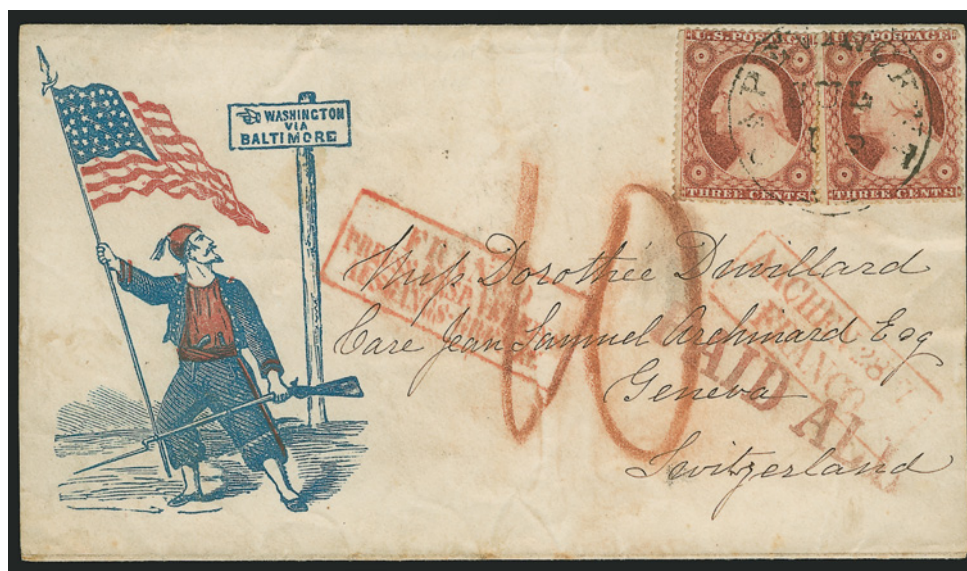 WASHINGTON
VIA
BALTIMORE
U.S. POSTAGE
THREE CENTS
U.S. POSTAGE
THREE CENTS
40
FRANCO
AACHEN 28
FRANCO
PAID ALL
Miss Dorothée Duvillard
Care Jean Samuel Archinard Esq
Geneva
Switzerland